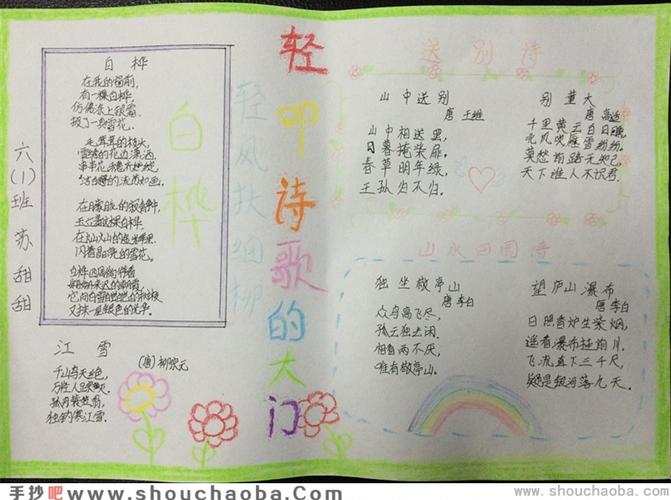 六(1)班 苏甜甜
白桦
在我的窗前,
有一棵白桦,
仿佛涂上银霜,
披了一身雪花。
毛茸茸的枝头,
雪绣的花边潇洒,
串串花穗齐绽,
洁白的流苏如画。
在朦胧的寂静中,
玉立着这棵白桦,
在灿灿的金晖里
闪着晶亮的雪花。
白桦四周徜徉着
姗姗来迟的朝霞,
它向白雪皑皑的树枝
又抹一层银色的光华。
白桦
江雪
(唐)柳宗元
千山鸟飞绝,
万径人踪灭。
孤舟蓑笠翁,
独钓寒江雪。
轻叩诗歌的大门
轻风扶细柳
送别诗
山中送别
唐 王维
山中相送罢,
日暮掩柴扉。
春草明年绿,
王孙归不归。
别董大
唐 高适
千里黄云白日曛,
北风吹雁雪纷纷。
莫愁前路无知己,
天下谁人不识君。
山水田园诗
独坐敬亭山
唐 李白
众鸟高飞尽,
孤云独去闲。
相看两不厌,
唯有敬亭山。
望庐山瀑布
唐 李白
日照香炉生紫烟,
遥看瀑布挂前川。
飞流直下三千尺,
疑是银河落九天。
手抄吧 www.shouchaoba.Com
www.shouchaoba.com